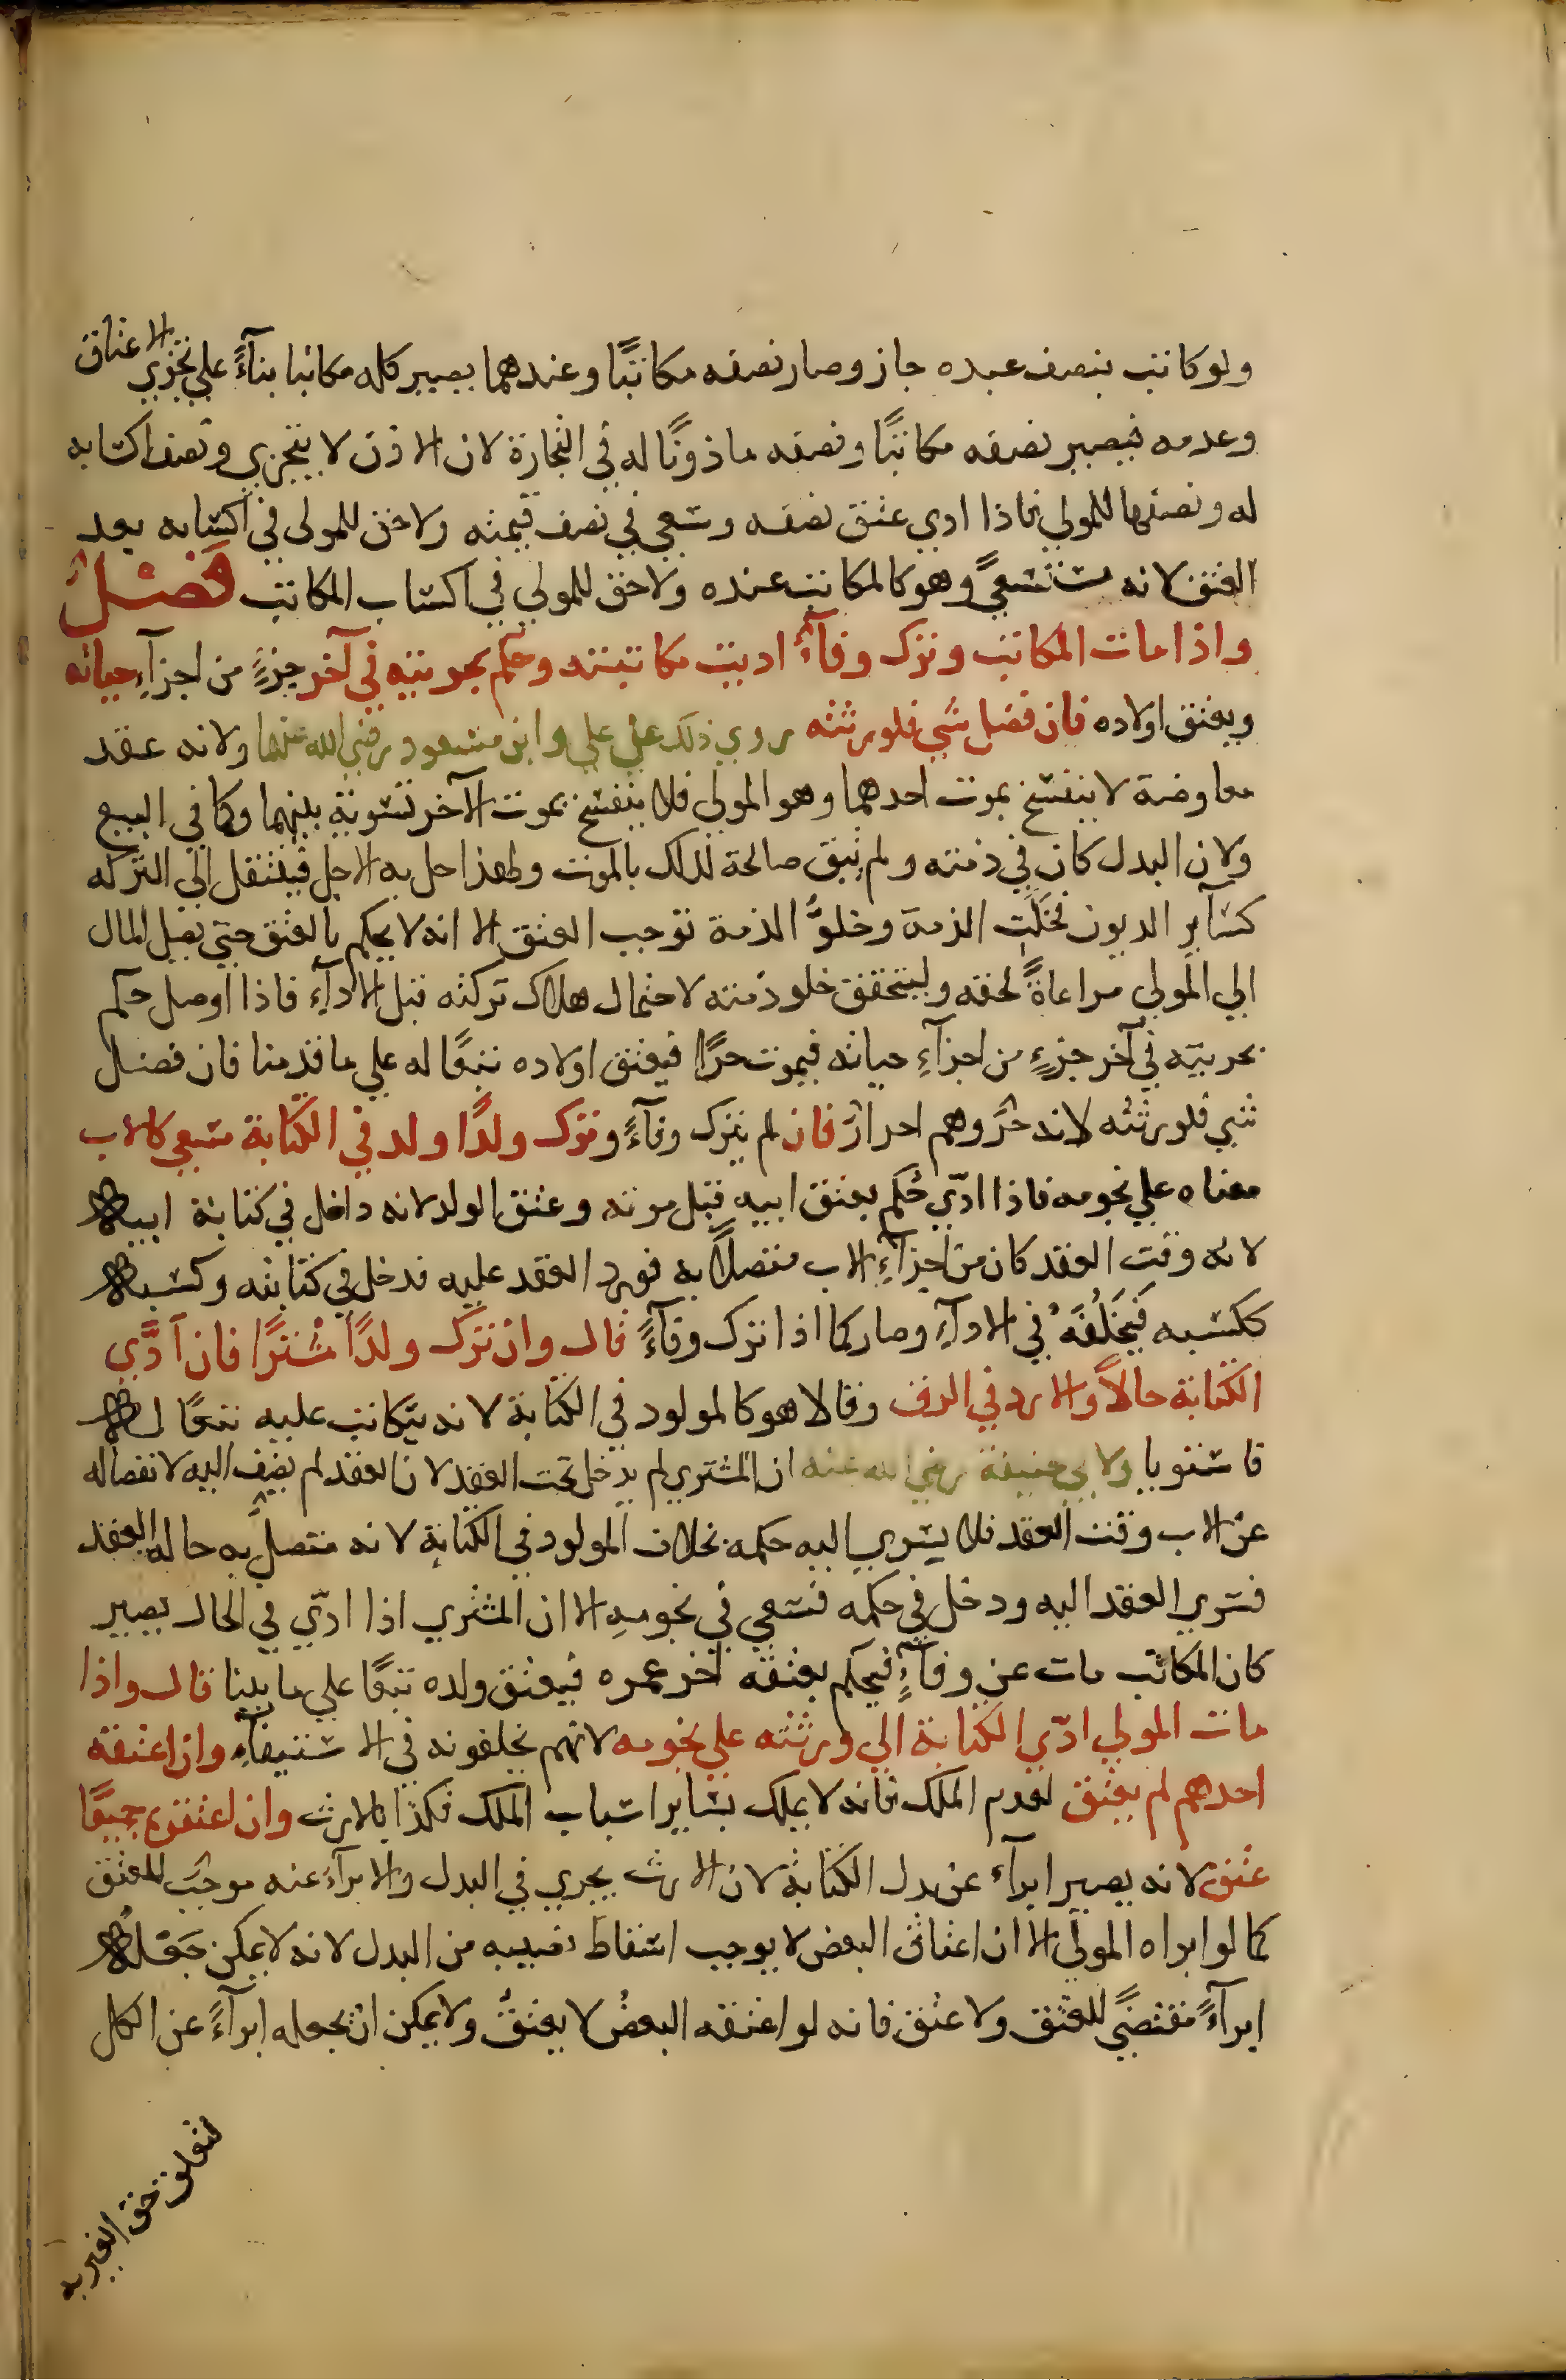 ولو كاتب نصف عبده جاز وصار نصفه مكاتبًا وعندهما يصير كله مكاتبا بناءً علي تجزي الاعتاق
وعدمه فيصير نصفه مكاتبًا ونصفه ماذونًا له في التجارة لان الاذن لا يتجزي ونصف اكسابه
له ونصفها للمولي فاذا ادي عتق نصفه وسعي في نصف قيمته ولا حق للمولي في اكسابه بعد
العتق لانه مستسعيً وهو كالمكاتب عنده ولا حق للمولي في اكساب المكاتب فصل
واذا مات المكاتب وترك وفآءً اديت مكاتبته وحكم بحريته في آخر جزءٍ من اجزآءِ حياته
ويعتق اولاده فان فضل شي فلورثته روي ذلك عن علي وابن مسعود رضي الله عنهما ولانه عقد
معاوضة لا ينفسخ بموت احدهما وهو المولي فلا ينفسخ بموت الآخر تسوية بينهما وكما في البيع
ولان البدل كان في ذمته ولم تبق صالحة لذلك بالموت ولهذا حل به الاجل فينتقل الي التركه
كسآير الديون فخلَت الذمة وخلوُّ الذمة توجب العتق الا انه لا يحكم بالعتق حتي يصل المال
الي المولي مراعاةً لحقه وليتحقق خلو ذمته لاحتمال هلاك تركته قبل الادآءِ فاذا اوصل حكم
بحريته في آخر جزءٍ من اجزآءِ حياته فيموت حرًا فيعتق اولاده تبعًا له علي ما قدمنا فان فضل
شي فلورثته لانه حرٌ وهم احرارٌ فان لم يترك وفآءً وترك ولدًا ولد في الكتابة سعي كالاب
معناه علي نجومه فاذا ادّي حُكم بعتق ابيه قبل موته وعتق الولد لانه داخل في كتابة ابيه
لانه وقت العقد كان من اجزآءِ الاب متصلاً به فورد العقد عليه فدخل في كتابته وكسبه
ككسبه فَيَخلُفُهُ في الادآءِ وصار كما اذا ترك وفآءً قال وان ترك ولدًا مشترًا فان آدَّي
الكتابة حالاً والا رد في الرق وقالا هو كالمولود في الكتابة لانه يتكاتب عليه تبعًا له
فاستويا ولابي حنيفة رضي الله عنه ان المشتري لم يدخل تحت العقد لان العقد لم يضف اليه لانفصاله
عن الاب وقت العقد فلا يسري اليه حكمه بخلاف المولود في الكتابة لانه متصلٌ به حاله العقد
فسري العقد اليه ودخل في حكمه فسعي في نجومهِ الا ان المشتري اذا ادّي في الحال يصير
كان المكاتب مات عن وفآءٍ فيحكم بعتقه آخر عمره فيعتق ولده تبعًا علي ما بينا قال واذا
مات المولي ادّي الكتابة الي ورثته علي نجومه لانهم يخلفونه في الاستيفآءِ وان اعتقه
احدهم لم يعتق لعدم الملك فانه لا يملك بسايراسباب الملك فكذا بالارث وان اعتقوه جميعًا
عتق لانه يصير ابرآء عن بدل الكتابة لان الارث يجري في البدل والابرآءَ عنه موجبٌ للعتق
كما لو ابراه المولي الا ان اعتاق البعض لا يوجب اسقاط نصيبه من البدل لانه لا يمكن جَعْلُه
ابرآءً مقتضيً للعتق ولا عتق فانه لو اعتقه البعضُ لا يعتقُ ولا يمكن ان يجعله ابرآءً عن الكل
لتعلق حق الغير به